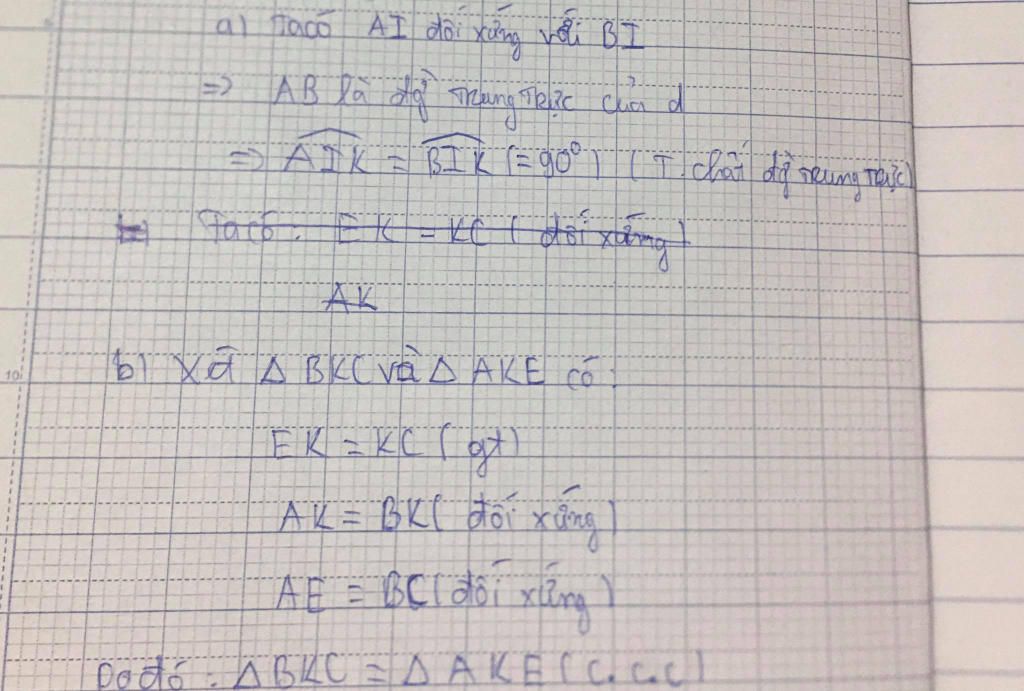 a) Ta có AI đối xứng với BI
=> AB là đg̀ trung trực của d
=> AIK = BIK (= 90°) (T. chất đg̀ trung trực)
Ta có: EK = KC ( đối xứng)
AK
b) Xét Δ BKC và Δ AKE có:
EK = KC ( gt)
AK = BK ( đối xứng)
AE = BC (đối xứng)
Do đó: Δ BKC = Δ AKE (c.c.c)
10